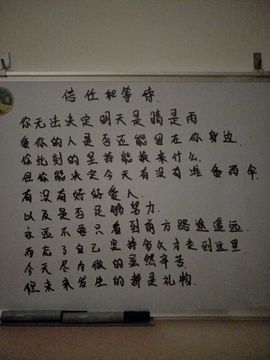 信任和等待.
你无法决定明天是晴是雨
爱你的人是否还能留在你身边.
你此刻的坚持能换来什么.
但你能决定今天有没有准备雨伞.
有没有好好爱人.
以及是否足够努力.
永远不要只看到前方路途遥远.
而忘了自己坚持多久才走到这里
今天尽力做的虽然辛苦.
但未来发生的都是礼物.